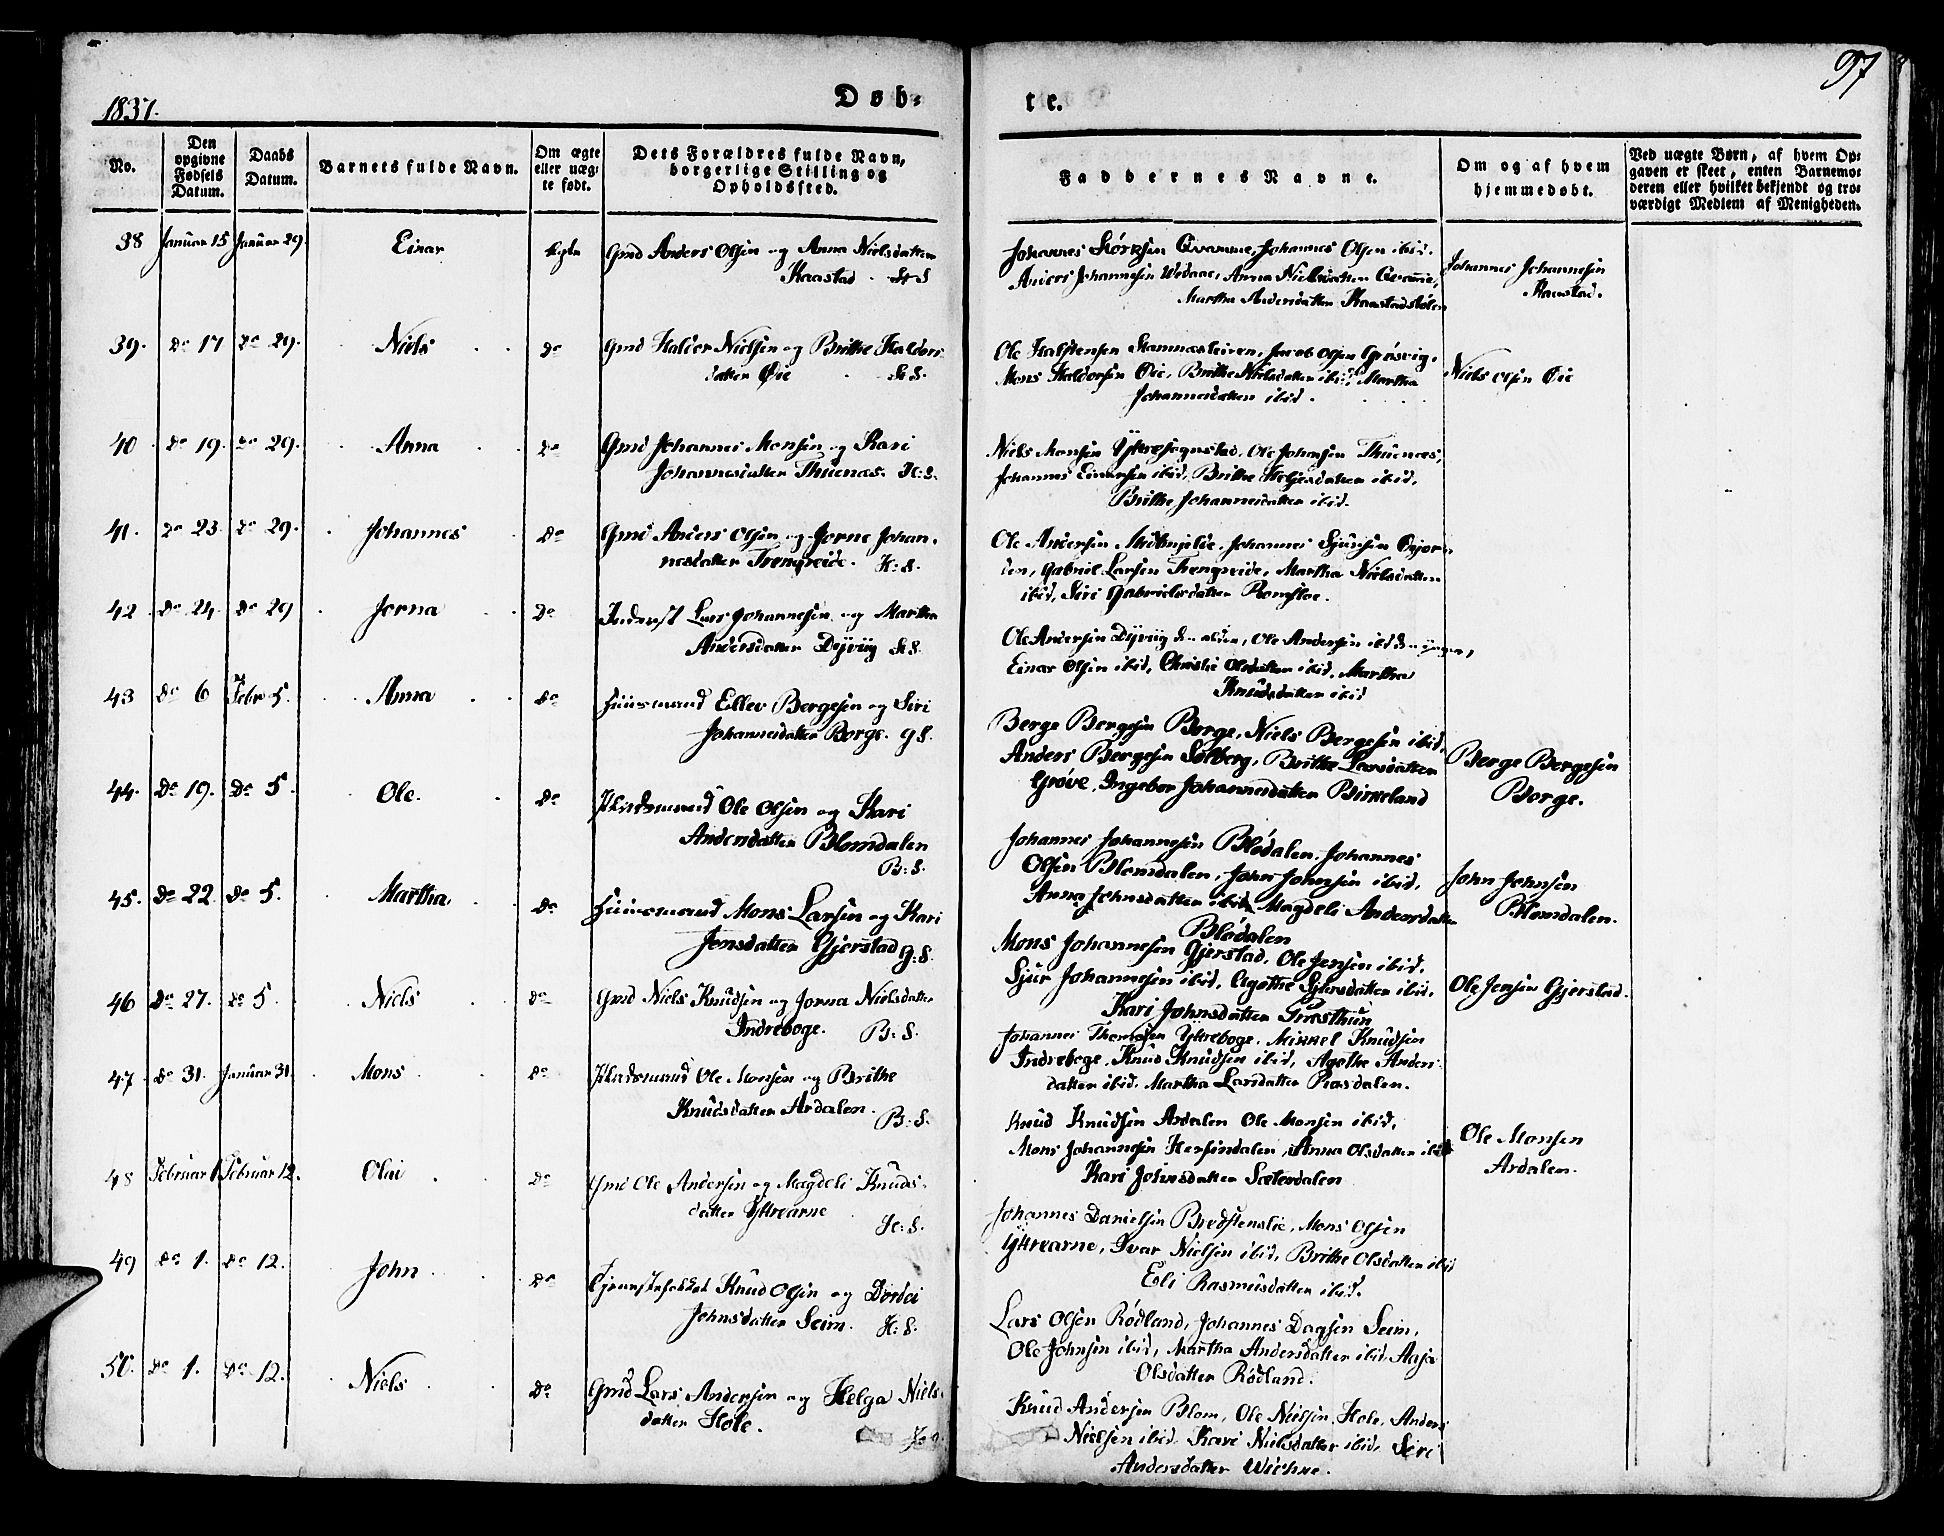 97
1837.
Døb-
te.
No.
Den opgivne Fødsels Datum.
Daabs Datum.
Barnets fulde Navn.
Om ægte eller uæg-te født.
Dets Forældres fulde Navn, borgerlige Stilling og Opholdssted.
Faddernes Navne.
Om og af hvem hjemmedøbt.
Ved uægte Børn, af hvem Op-
gaven er skeet, enten Barnemo-
deren eller hvilket bekjendt og tro-
værdigt Medlem af Menigheden.
38 Januar 15 Januar 29. Einar Ægte Gmd Anders Olsen og Anna Nielsdatter
Kaastad
Johannes Størksen Qvamme, Johannes Olsen ibid.
Anders Johannesen Wedaae, Anna Nielsdatter Qvamme,
Martha Andersdatter Kaastadstølen
Johannes Johannesen
Kaastad.
39. Do 17 Do 29. Niels Do Gmd Haldor Nielsen og Brithe Haldors-
datter Øie
Ole Halstensen Stamnæsleiren, Jacob Olsen Grøsvig,
Mons Haldorsen Øie, Brithe Nielsdatter ibid, Martha
Johannesdatter ibid.
Niels Olsen Øie
40 Do 19. Do 29. Anna Do Gmd Johannes Monsen og Kari
Johannesdatter Thuenæs. H:S.
Niels Monsen Yttrefognstad, Ole Johansen Thuenæs,
Johannes Einarsen ibid, Brithe Helgesdatter ibid,
Brithe Johannesdatter ibid.
41. Do 23. Do 29. Johannes Do Gmd Anders Olsen og Jorne Johan-
nesdatter Trengreide. H:S.
Ole Andersen, Johannes Sjursen
Gabriel Larsen Trengreide, Martha Nielsdatter
ibid, Siri Gabrielsdatter Romsloe.
42 Do 24. Do 29 Jorna Do Inderst Lars Johannesen og Martha
Andersdatter Dyvиg
Ole Andersen Dyvig den ældre, Ole Andersen ibid den yngre,
Einar Olsen ibid, Christie Olsdatter ibid, Martha
Knudsdatter ibid
43 Do 6 Febr 5. Anna Do Huusmand Ellev Bergesen og Siri
Johannesdatter Borge. G S.
Berge Bergesen Borge, Niels Bergesen ibid,
Anders Bergesen Solberg, Brithe Larsdatter
Grøve, Ingebor Johannesdatter Birkeland
Berge Bergesen
Borge.
44. Do 19. Do 5 Ole. Do Pladsmand Ole Olsen og Kari
Andersdatter Blomdalen
B:S.
Johannes Johannesen Blødalen, Johannes
Olsen Blomdalen, John Johnsen ibid,
Anna Johnsdatter ibid, Magdeli Andersdatter
Blødalen
John Johnsen
Blomdalen.
45. Do 22. Do 5. Martha Do Huusmand Mons Larsen og Kari
Jensdatter Gjerstad G:S.
Mons Johannesen Gjerstad, Ole Jensen ibid,
Sjur Johannesen ibid, Agathe Sjursdatter ibid,
Kari Johnsdatter Præsthun
Ole Jensen Gjerstad.
46 Do 27. Do 5. Niels Do Gmd Niels Knudsen og Jorna Nielsdatter
Indreboge. B:S.
Johannes Thomasen Yttreboge, Mikkel Knudsen
Indreboge, Knud Knudsen ibid, Agathe Anders-
datter ibid. Martha Larsdatter Rasdalen.
47 Do 31. Januar 31. Mons Do Pladsmand Ole Monsen og Brithe
Knudsdatter Ardalen. B:S.
Knud Knudsen Ardalen Ole Monsen ibid,
Mons Johannesen Hersindalen, Anna Olsdatter ibid
Kari Johnsdatter Sæterdalen
Ole Monsen
Ardalen.
48 Februar 1 Februar 12. Olai Do Gmd Ole Andersen og Magdeli Knuds-
datter Yttrearne H:S.
Johannes Danielsen Bredstenslie, Mons Olsen
Yttrearne, Ivar Nielsen ibid, Brithe Olsdatter ibid
Eli Rasmusdatter ibid.
49 Do 1. Do 12. John Do Tjenestefolket Knud Olsen og Dordei
Johnsdatter Seim. H:S.
Lars Olsen Rødland, Johannes Dagsen Seim,
Ole Johnsen ibid, Martha Andersdatter ibid, Aasa
Olsdatter Rødland.
50. Do 1. Do 12. Niels Do Gmd Lars Andersen og Helga Niels-
datter Hole.
Knud Andersen Blom, Ole Nielsen Hole, Anders
Nielsen ibid. Kari Nielsdatter ibid, Siri
Andersdatter Wichne.